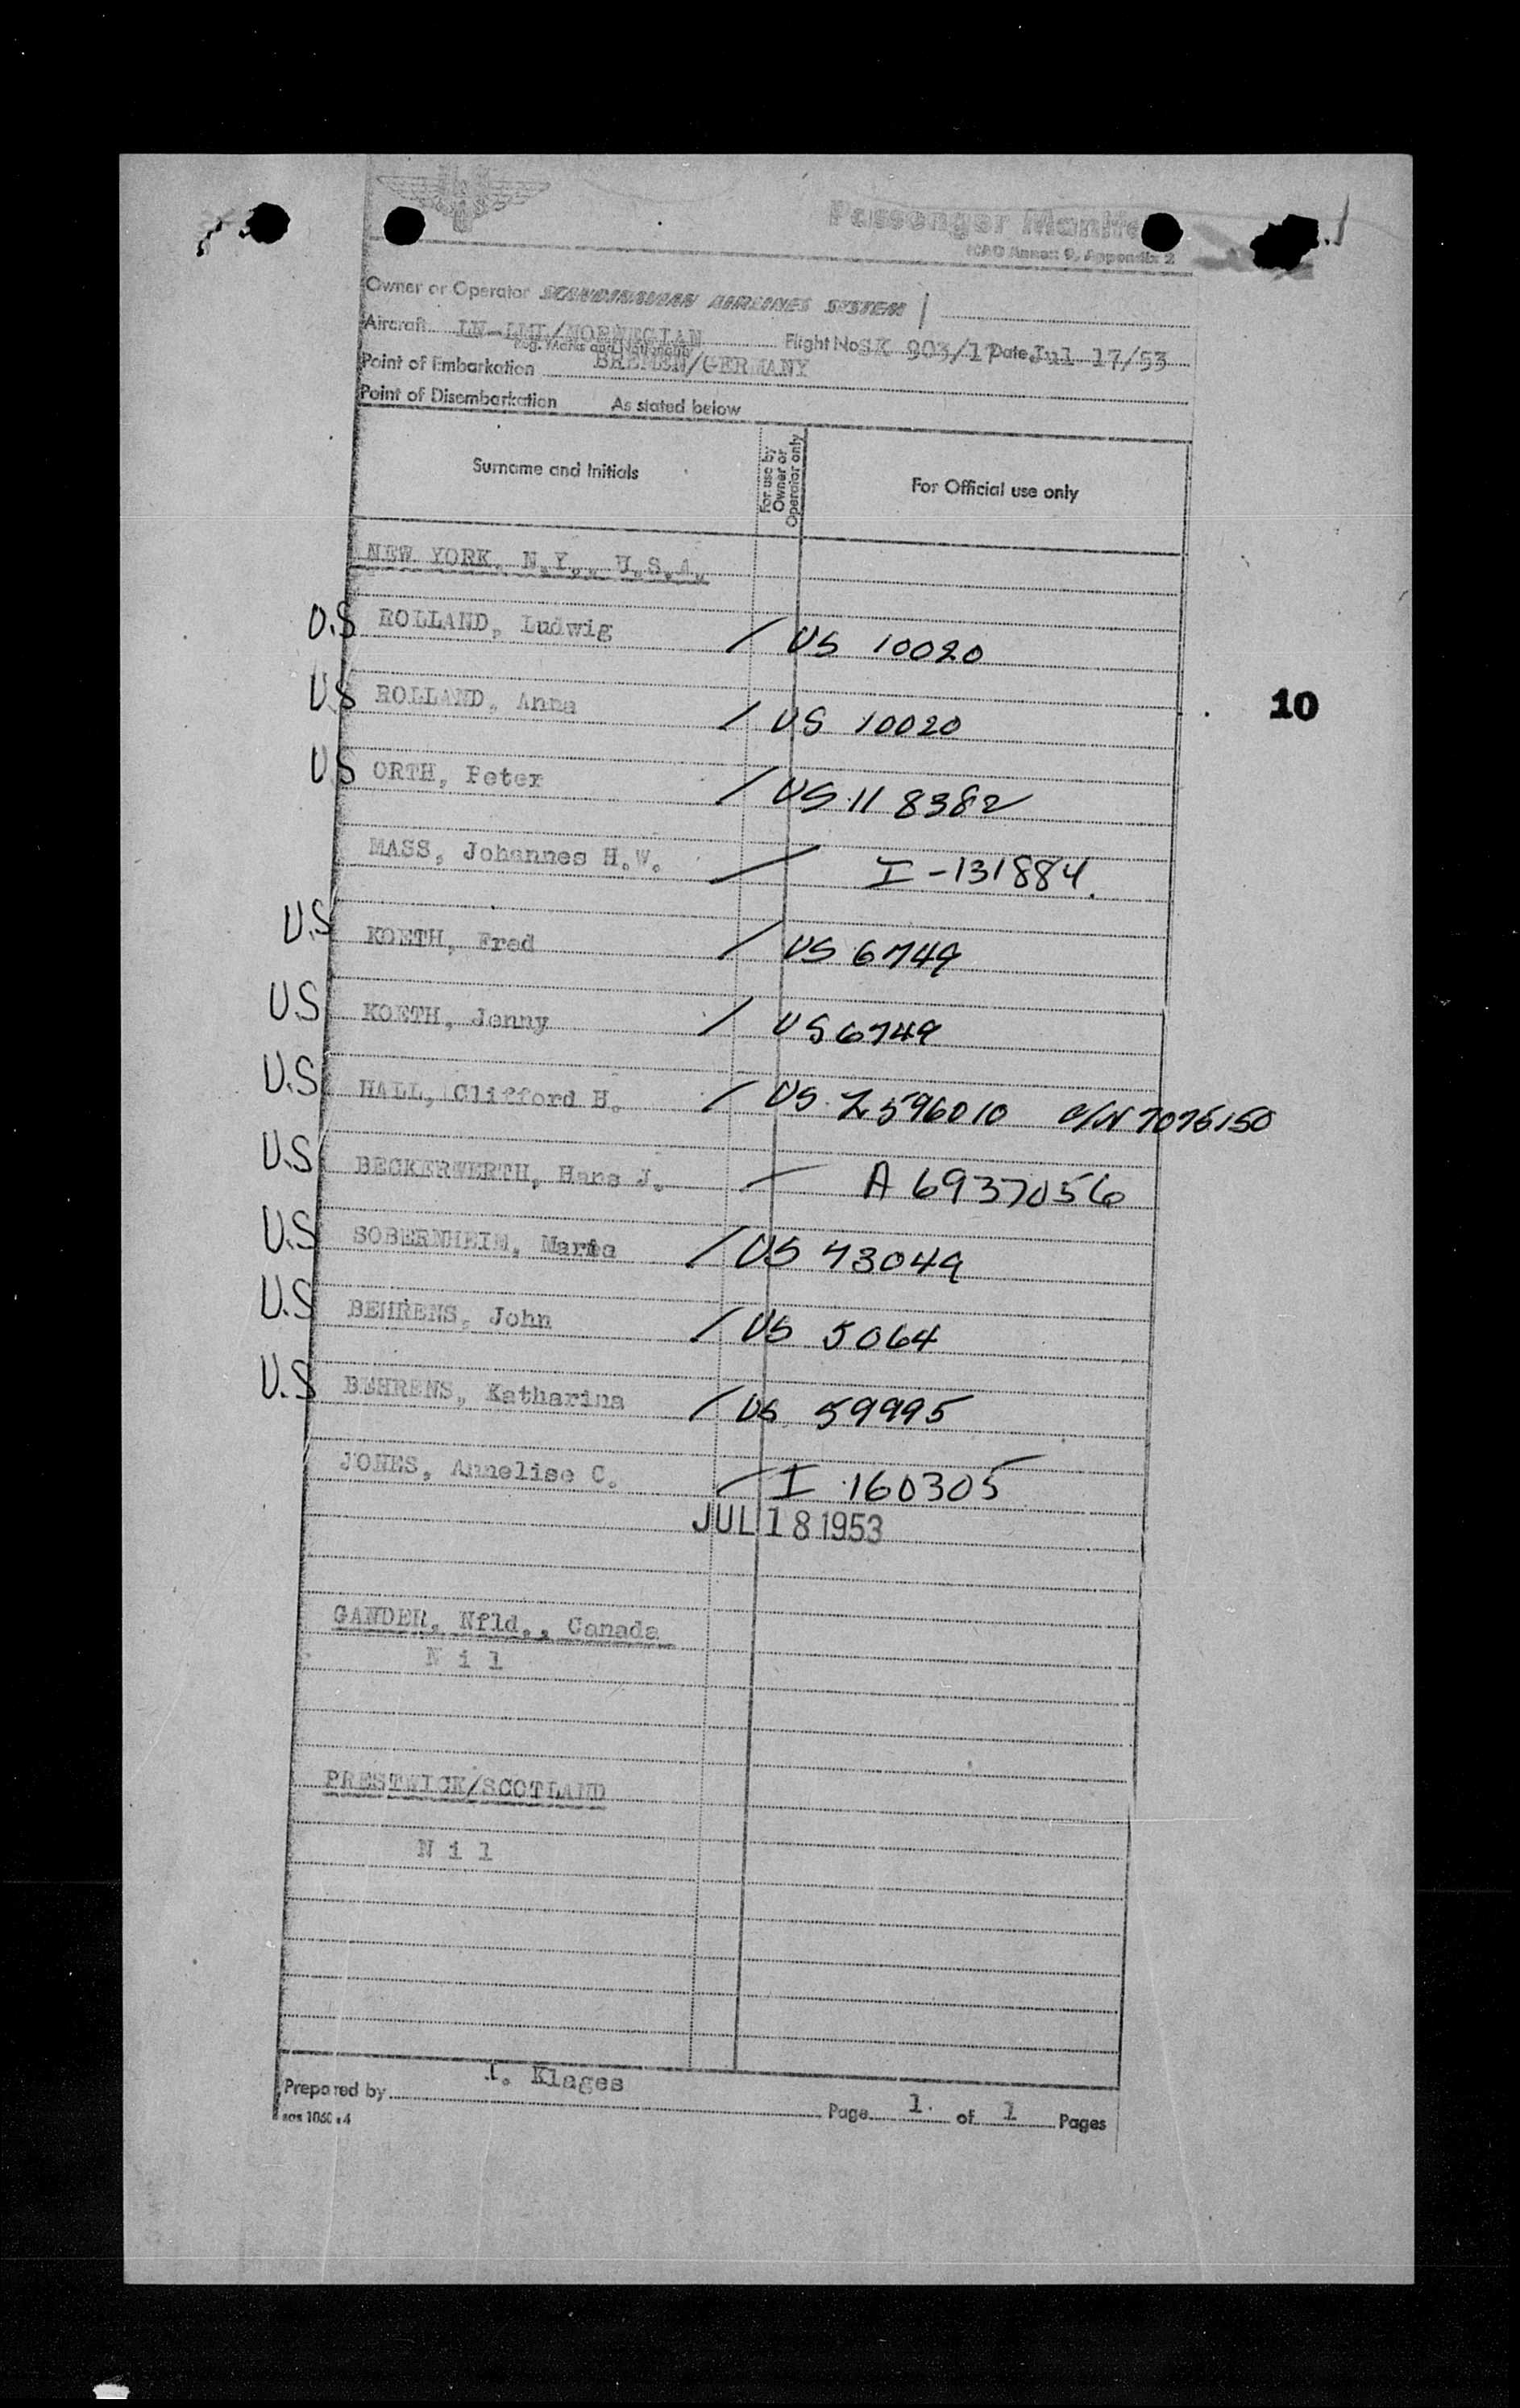 Passenger Manife
ICAO Annex 9, Appendix 2
Owner or Operator SCANDINAVIAN AIRLINES SYSTEM
Aircraft /NORWEGIAN Flight No SK 903/17 Date Jul 17/53
Reg. Marks and Nationality
Point of Embarkation BREMEN/GERMANY
Point of Disembarkation As stated below
Surname and Initials For use by Owner or Operator only For Official use only
NEW YORK, N.Y., U.S.A.
U.S ROLLAND, Ludwig / US 10020
U.S ROLLAND, Anna / US 10020
US ORTH, Peter / US 118382
MASS, Johannes H.W. / I-131884.
U.S KOETH, Fred / US 6749
U.S KOETH, Jenny / US 6749
U.S HALL, Clifford H. / US Z596010 C/N 7075150
U.S BECKERWERTH, Hans J. / A 6937056
U.S SOBERNHEIM, / US 73049
U.S BEHRENS, John / US 5064
U.S BEHRENS, Katharina / US 59995
JONES, Annelise C. / I 160305
JUL 18 1953
GANDER, Nfld., Canada
N i l
PRESTWICK/SCOTLAND
N i l
Prepared by I. Klages
Page 1 of 1 Pages
sas 1060:4
10